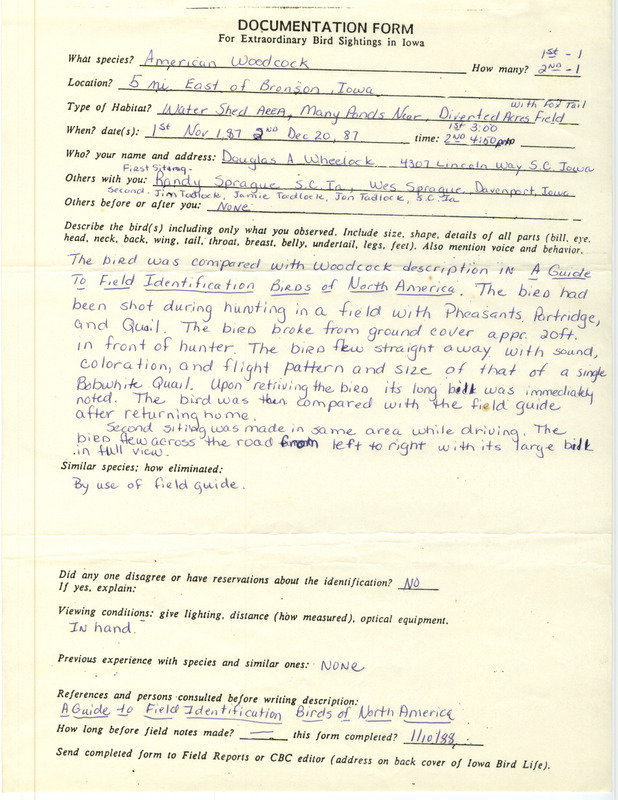 DOCUMENTATION FORM
For Extraordinary Bird Sightings in Iowa
1st - 1
What species? American Woodcock How many? 2ND -1
Location? 5 mi. East of Bronson, Iowa
with Fox Tail
Type of Habitat? Water Shed Area, Many Ponds Near, Diverted Acres Field
When? date(s): 1st Nov 1, 87 2ND Dec 20, 87 time: 1st 3:00
2ND 4:60 pm
Who? your name and address: Douglas A Wheelock 4307 Lincoln Way S.C. Iowa
First Siting.
Others with you: Randy Sprague S.C. Ia, Wes Sprague, Davenport, Iowa
Second. Jim Tadlock, Jamie Tadlock, Jon Tadlock, S.C. Ia
Others before or after you: NONE
Describe the bird(s) including only what you observed. Include size, shape, details of all parts (bill, eye,
head, neck, back, wing, tail, throat, breast, belly, undertail, legs, feet). Also mention voice and behavior.
The bird was compared with Woodcock description in A Guide
To Field Identification Birds of North America. The bird had
been shot during hunting in a field with Pheasants, Partridge,
and Quail. The bird broke from ground cover appr. 20ft.
in front of hunter. The bird flew straight away with sound,
coloration, and flight pattern and size of that of a single
Bobwhite Quail. Upon retriving the bird its long bill was immediately
noted. The bird was then compared with the field guide
after returning home.
Second siting was made in same area while driving. The
bird flew across the road from left to right with its large bill
in full view.
Similar species; how eliminated:
By use of field guide.
Did any one disagree or have reservations about the identification? NO
If yes, explain:
Viewing conditions: give lighting, distance (how measured), optical equipment.
In hand.
Previous experience with species and similar ones: NONE
References and persons consulted before writing description:
A Guide to Field Identification Birds of North America
How long before field notes made? — this form completed? 1/10/88
Send completed form to Field Reports or CBC editor (address on back cover of Iowa Bird Life).